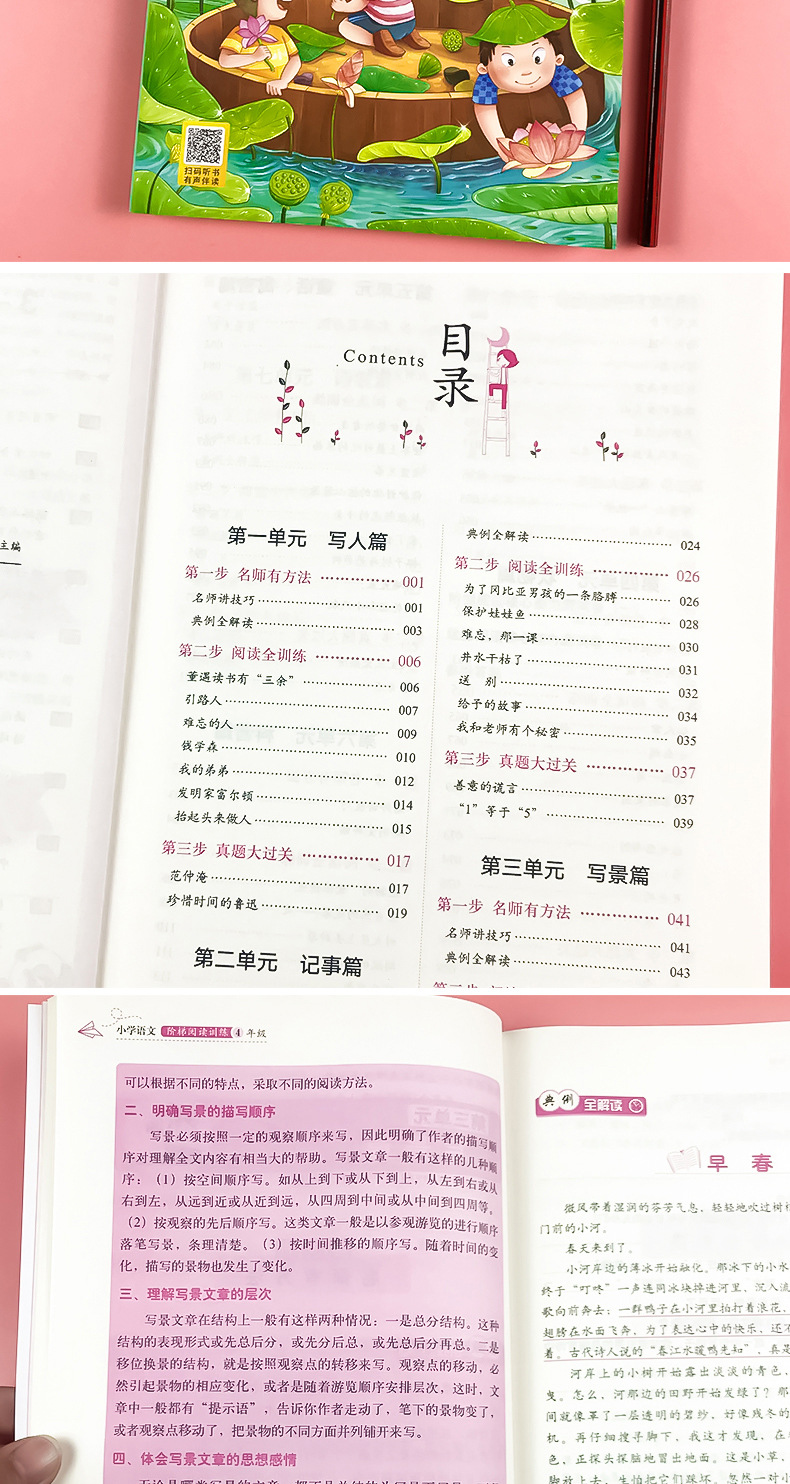 扫码听书
有声伴读
主编
Contents
目录
第一单元 写人篇
第一步 名师有方法 …………… 001
名师讲技巧 …………… 001
典例全解读 …………… 003
第二步 阅读全训练 …………… 006
董遇读书有“三余” …………… 006
引路人 …………… 007
难忘的人 …………… 009
钱学森 …………… 010
我的弟弟 …………… 012
发明家富尔顿 …………… 014
抬起头来做人 …………… 015
第三步 真题大过关 …………… 017
范仲淹 …………… 017
珍惜时间的鲁迅 …………… 019
第二单元 记事篇
典例全解读 …………… 024
第二步 阅读全训练 …………… 026
为了冈比亚男孩的一条胳膊 …………… 026
保护娃娃鱼 …………… 028
难忘，那一课 …………… 030
井水干枯了 …………… 031
送 别 …………… 032
给予的故事 …………… 034
我和老师有个秘密 …………… 035
第三步 真题大过关 …………… 037
善意的谎言 …………… 037
“1”等于“5” …………… 039
第三单元 写景篇
第一步 名师有方法 …………… 041
名师讲技巧 …………… 041
典例全解读 …………… 043
小学语文 阶梯阅读训练 4 年级
可以根据不同的特点，采取不同的阅读方法。
二、明确写景的描写顺序
写景必须按照一定的观察顺序来写，因此明确了作者的描写顺
序对理解全文内容有相当大的帮助。写景文章一般有这样的几种顺
序：（1）按空间顺序写。如从上到下或从下到上，从左到右或从
右到左，从远到近或从近到远，从四周到中间或从中间到四周等。
（2）按观察的先后顺序写。这类文章一般是以参观游览的进行顺序
落笔写景，条理清楚。（3）按时间推移的顺序写。随着时间的变
化，描写的景物也发生了变化。
三、理解写景文章的层次
写景文章在结构上一般有这样两种情况：一是总分结构。这种
结构的表现形式或先总后分，或先分后总，或先总后分再总。二是
移位换景的结构，就是按照观察点的转移来写。观察点的移动，必
然引起景物的相应变化，或者是随着游览顺序安排层次，这时，文
章中一般都有“提示语”，告诉你作者走动了，笔下的景物变了，
或者观察点移动了，把景物的不同方面并列铺开来写。
四、体会写景文章的思想感情
典例 全解读
早 春
微风带着湿润的芬芳气息，轻轻地吹过树梢
门前的小河。
春天来到了。
小河岸边的薄冰开始融化。那冰下的小水
终于“叮咚”一声连同冰块掉进河里，沉入流
歌向前奔去；一群鸭子在小河里拍打着浪花，
翅膀在水面飞奔，为了表达心中的快乐，还不
着。古代诗人说的“春江水暖鸭先知”，真是
河岸上的小树开始露出淡淡的青色，
曳。怎么，河那边的田野开始发绿了？那
间就像罩了一层透明的碧纱，好像残冬的
机。再仔细搜寻脚下，我这才发现，在
色，正探头探脑地冒出地面。这是小草，
脚放上去，生怕把它们踩坏。忽然一对小